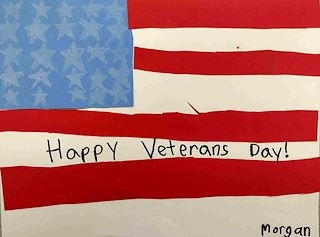 Happy Veterans Day!
Morgan